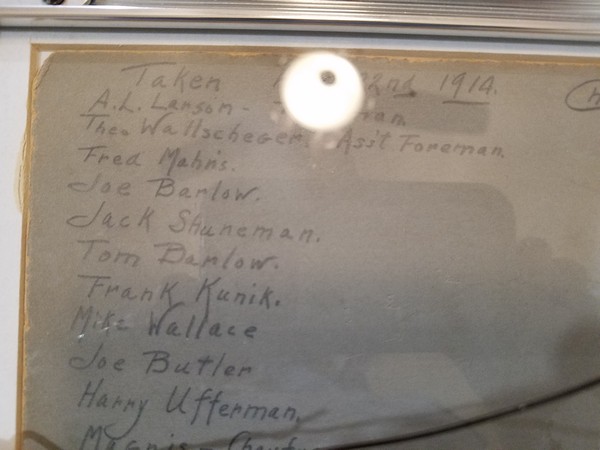 Taken 22nd 1914.
A.L. Larson -
Theo Wallscheger. Ass't Foreman.
Fred Mahns.
Joe Barlow.
Jack Shuneman.
Tom Barlow.
Frank Kunik.
Mike Wallace
Joe Butler
Harry Ufferman.